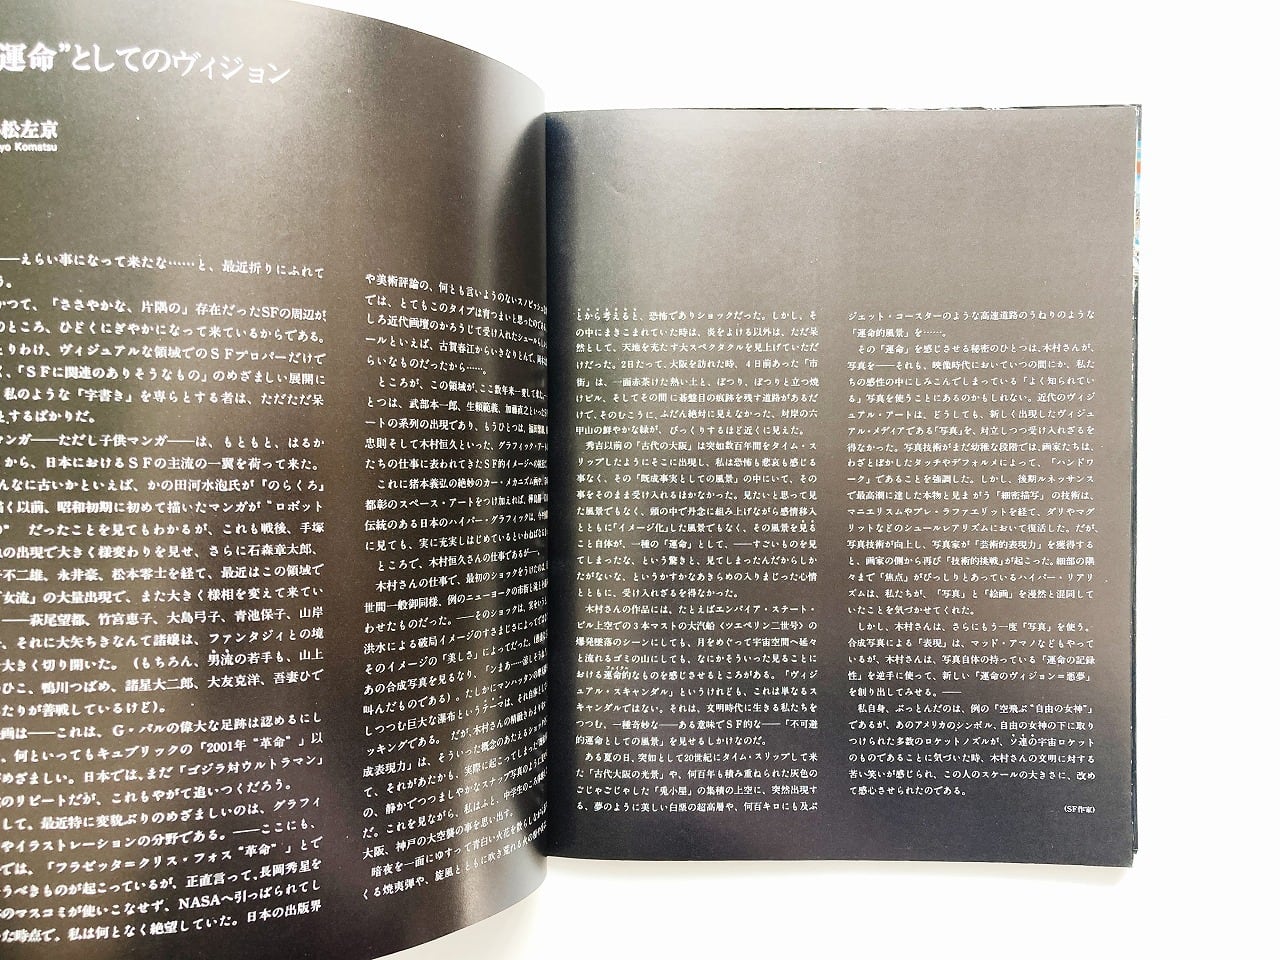 運命”としてのヴィジョン
松左京
yo Komatsu
―えらい事になって来たな……と、最近折りにふれて
う。
つて、「ささやかな、片隅の」存在だったSFの周辺が
のところ、ひどくにぎやかになって来ているからである。
とりわけ、ヴィジュアルな領域でのSFプロパーだけで
く、「SFに関連のありそうなもの」のめざましい展開に
私のような「字書き」を専らとする者は、ただただ呆
とするばかりだ。
マンガ――ただし子供マンガ――は、もともと、はるか
から、日本におけるSFの主流の一翼を荷って来た。
んなに古いかといえば、かの田河水泡氏が『のらくろ』
描く以前、昭和初期に初めて描いたマンガが“ロボット
” だったことを見てもわかるが、これも戦後、手塚
の出現で大きく様変わりを見せ、さらに石森章太郎、
子不二雄、永井豪、松本零士を経て、最近はこの領域で
「女流」の大量出現で、また大きく様相を変えて来てい
――萩尾望都、竹宮恵子、大島弓子、青池保子、山岸
、それに大矢ちきなんて諸嬢は、ファンタジィとの境
大きく切り開いた。（もちろん、男流の若手も、山上
ひこ、鴨川つばめ、諸星大二郎、大友克洋、吾妻ひで
たりが善戦しているけど）。
画は――これは、G・パルの偉大な足跡は認めるにし
、何といってもキュブリックの「2001年“革命”」以
めざましい。日本では、まだ「ゴジラ対ウルトラマン」
のリピートだが、これもやがて追いつくだろう。
して、最近特に変貌ぶりのめざましいのは、グラフィ
やイラストレーションの分野である。――ここにも、
では、「フラゼッタ＝クリス・フォス“革命”」とで
うべきものが起こっているが、正直言って、長岡秀星を
のマスコミが使いこなせず、NASAへ引っぱられてし
た時点で、私は何となく絶望していた。日本の出版界
や美術評論の、何とも言いようのないスノビッシュ
では、とてもこのタイプは育つまいと思ったので
しろ近代画壇のかろうじて受け入れたシュール
ールといえば、古賀春江からいきなりとんで、
らいなものだったから……。
ところが、この領域が、ここ数年来一変して来た。
とつは、武部本一郎、生頼範義、加藤直之といった
ートの系列の出現であり、もうひとつは、
忠則そして木村恒久といった、グラフィック・アート
たちの仕事に表われてきたSF的イメージへの
これに猪本義弘の絶妙のカー・メカニズム画や、
都彰のスペース・アートをつけ加えれば、
伝統のある日本のハイパー・グラフィックは、
に見ても、実に充実しはじめているといわねばなる
ところで、木村恒久さんの仕事であるが――。
木村さんの仕事で、最初のショックをうけたのは、
世間一般御同様、例のニューヨークの市街と滝と
わせたものだった。――そのショックは、実をいうと
洪水による破局イメージのすさまじさによってではなく
そのイメージの「美しさ」によってだった。
あの合成写真を見るなり、「ンまあ……涼しそう
叫んだものである）。たしかにマンハッタンの
しつつむ巨大な瀑布というテーマは、それ自体
ッキングである。 だが、木村さんの精緻きわまりない
成表現力」は、そういった概念のあたえるショック
て、それがあたかも、実際に起こってしまった
の、静かでつつましやかなスナップ写真のように
だ。これを見ながら、私はふと、中学生のころ
大阪、神戸の大空襲の事を思い出す。
暗夜を一面にゆすって青白い火花を散らしながら
くる焼夷弾や、旋風とともに吹き荒れる火の
とから考えると、恐怖でありショックだった。しかし、そ
の中にまきこまれていた時は、炎をよける以外は、ただ呆
然として、天地を充たす大スペクタクルを見上げていただ
けだった。2日だって、大阪を訪れた時、4日前あった「市
街」は、一面赤茶けた熱い土と、ぽつり、ぽつりと立つ焼
けビル、そしてその間に碁盤目の痕跡を残す道路があるだ
けで、そのむこうに、ふだん絶対に見えなかった、対岸の六
甲山の鮮やかな緑が、びっくりするほど近くに見えた。
秀吉以前の「古代の大阪」は突如数百年間をタイム・ス
リップしたようにそこに出現し、私は恐怖も悲哀も感じる
事なく、その「既成事実としての風景」の中にいて、その
事をそのまま受け入れるほかなかった。見たいと思って見
た風景でもなく、頭の中で丹念に組み上げながら感情移入
とともに「イメージ化」した風景でもなく、その風景を見る
こと自体が、一種の「運命」として、――すごいものを見
てしまったな、という驚きと、見てしまったんだからしか
たがないな、というかすかなあきらめの入りまじった心情
とともに、受け入れざるを得なかった。
木村さんの作品には、たとえばエンパイア・ステート・
ビル上空での3本マストの大汽船〈ツエペリン二世号〉の
爆発墜落のシーンにしても、月をめぐって宇宙空間へ延々
と流れるゴミの山にしても、なにかそういった見ることに
おける運命的なものを感じさせるところがある。「ヴィジ
ュアル・スキャンダル」というけれども、これは単なるス
キャンダルではない。それは、文明時代に生きる私たちを
つつむ、一種奇妙な――ある意味でSF的な――「不可避
的運命としての風景」を見せるしかけなのだ。
ある夏の日、突如として20世紀にタイム・スリップして来
た「古代大阪の光景」や、何百年も積み重ねられた灰色の
ごじゃごじゃした「兎小屋」の集積の上空に、突然出現す
る、夢のように美しい白堊の超高層や、何百キロにも及ぶ
ジェット・コースターのような高速道路のうねりのような
「運命的風景」を……。
その「運命」を感じさせる秘密のひとつは、木村さんが、
写真を――それも、映像時代においていつの間にか、私た
ちの感性の中にしみこんでしまっている「よく知られてい
る」写真を使うことにあるのかもしれない。近代のヴィジ
ュアル・アートは、どうしても、新しく出現したヴィジュ
アル・メディアである「写真」を、対立しつつ受け入れざるを
得なかった。写真技術がまだ幼稚な段階では、画家たちは、
わざとぼかしたタッチやデフォルメによって、「ハンドワ
ーク」であることを強調した。しかし、後期ルネッサンス
で最高潮に達した本物と見まがう「細密描写」の技術は、
マニエリスムやプレ・ラファエリットを経て、ダリやマグ
リットなどのシュールレアリズムにおいて復活した。だが、
写真技術が向上し、写真家が「芸術的表現力」を獲得する
と、画家の側から再び「技術的挑戦」が起こった。細部の隅
々まで「焦点」がぴっしりとあっているハイパー・リアリ
ズムは、私たちが、「写真」と「絵画」を漫然と混同して
いたことを気づかせてくれた。
しかし、木村さんは、さらにもう一度「写真」を使う。
合成写真による「表現」は、マッド・アマノなどもやって
いるが、木村さんは、写真自体の持っている「運命の記録
性」を逆手に使って、新しい「運命のヴィジョン＝悪夢」
を創り出してみせる。――
私自身、ぶっとんだのは、例の「空飛ぶ“自由の女神”」
であるが、あのアメリカのシンボル、自由の女神の下に取り
つけられた多数のロケットノズルが、ソ連の宇宙ロケット
のものであることに気づいた時、木村さんの文明に対する
苦い笑いが感じられ、この人のスケールの大きさに、改め
て感心させられたのである。
（SF作家）